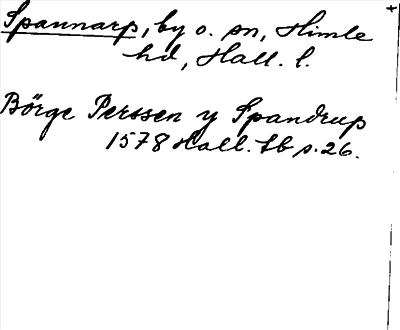 Spannarp, by o. sn, Himle
hd, Hall. l.
Börge Perssen y Spandrup
1578 Hall. Lb s. 26.